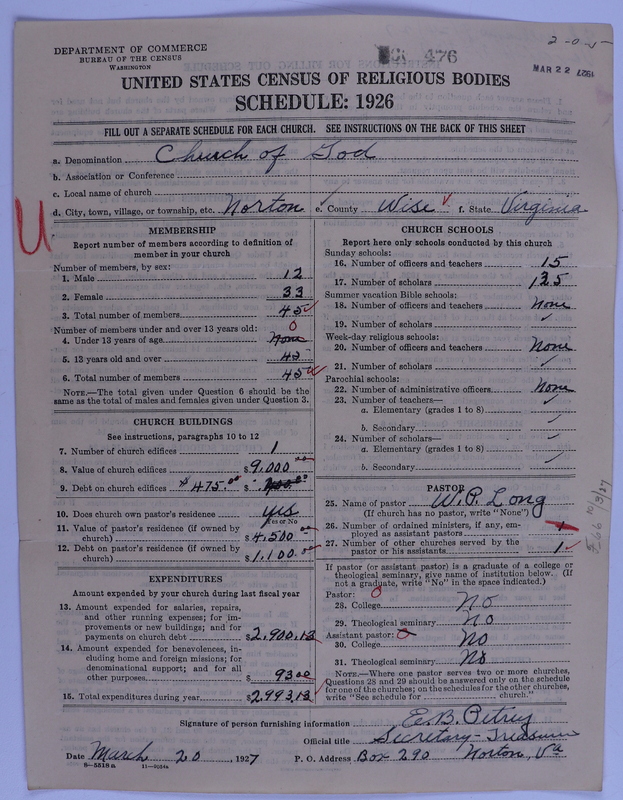 DEPARTMENT OF COMMERCE
BUREAU OF THE CENSUS
WASHINGTON
476
2-0-5
MAR 22 1927
UNITED STATES CENSUS OF RELIGIOUS BODIES
SCHEDULE: 1926
FILL OUT A SEPARATE SCHEDULE FOR EACH CHURCH. SEE INSTRUCTIONS ON THE BACK OF THIS SHEET
a. Denomination Church of God
b. Association or Conference
c. Local name of church
d. City, town, village, or township, etc. Norton e. County Wise f. State Virginia
U
MEMBERSHIP
Report number of members according to definition of
member in your church
Number of members, by sex:
1. Male 12
2. Female 33
3. Total number of members 45
Number of members under and over 13 years old: 0
4. Under 13 years of age None
5. 13 years old and over 45
6. Total number of members 45
NOTE.—The total given under Question 6 should be
same as the total of males and females given under Question 3.
CHURCH BUILDINGS
See instructions, paragraphs 10 to 12
7. Number of church edifices 1
8. Value of church edifices $9,000.00
9. Debt on church edifices $475.00 $
10. Does church own pastor's residence? yes
Yes or No
11. Value of pastor's residence (if owned by
church) $4,500.00
12. Debt on pastor's residence (if owned by
church) $1,100.00
EXPENDITURES
Amount expended by your church during last fiscal year
13. Amount expended for salaries, repairs,
and other running expenses; for im-
provements or new buildings; and for
payments on church debt $2,900.13
14. Amount expended for benevolences, in-
cluding home and foreign missions; for
denominational support; and for all
other purposes $ 93.00
15. Total expenditures during year $2,993.13
CHURCH SCHOOLS
Report here only schools conducted by this church
Sunday schools:
16. Number of officers and teachers 15
17. Number of scholars 135
Summer vacation Bible schools:
18. Number of officers and teachers None
19. Number of scholars
Week-day religious schools:
20. Number of officers and teachers None
21. Number of scholars
Parochial schools:
22. Number of administrative officers None
23. Number of teachers—
a. Elementary (grades 1 to 8)
b. Secondary
24. Number of scholars—
a. Elementary (grades 1 to 8)
b. Secondary
PASTOR
25. Name of pastor W. P. Long
(If church has no pastor, write "None")
26. Number of ordained ministers, if any, em-
ployed as assistant pastors
27. Number of other churches served by the
pastor or his assistants 1
If pastor (or assistant pastor) is a graduate of a college or
theological seminary, give name of institution below. (If
not a graduate, write "No" in the space indicated.)
Pastor: 0
28. College No
29. Theological seminary No
Assistant pastor: 0
30. College No
31. Theological seminary No
NOTE.—Where one pastor serves two or more churches,
Questions 28 and 29 should be answered only on the schedule
for one of the churches; on the schedules for the other churches,
write "See schedule for church."
Signature of person furnishing information E. B. Petrey
Official title Secretary-Treasurer
Date March 20, 1927 P. O. Address Box 290 Norton, Va
8—5518 a 11—9034a